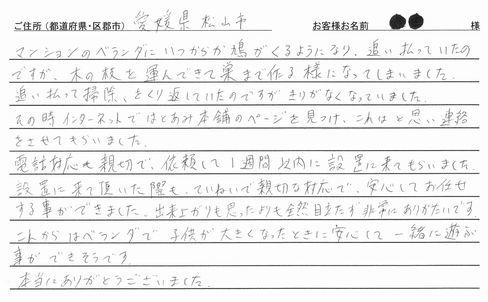 ご住所（都道府県・区郡市） 愛媛県松山市 お客様お名前 ●● 様
マンションのベランダにいつからか鳩がくるようになり、追い払っていたの
ですが、木の枝を運んできて巣まで作る様になってしまいました。
追い払って掃除、をくり返していたのですがきりがなくなっていました。
その時インターネットではとあみ本舗のページを見つけ、これはと思い連絡
をさせてもらいました。
電話対応も親切で、依頼して1週間以内に設置に来てもらいました。
設置に来て頂いた際も、ていねいで親切な対応で、安心してお任せ
する事ができました。出来上がりも思ったよりも全然目立たず非常にありがたいです
これからはベランダで子供が大きくなったときに安心して一緒に遊ぶ
事ができそうです。
本当にありがとうございました。